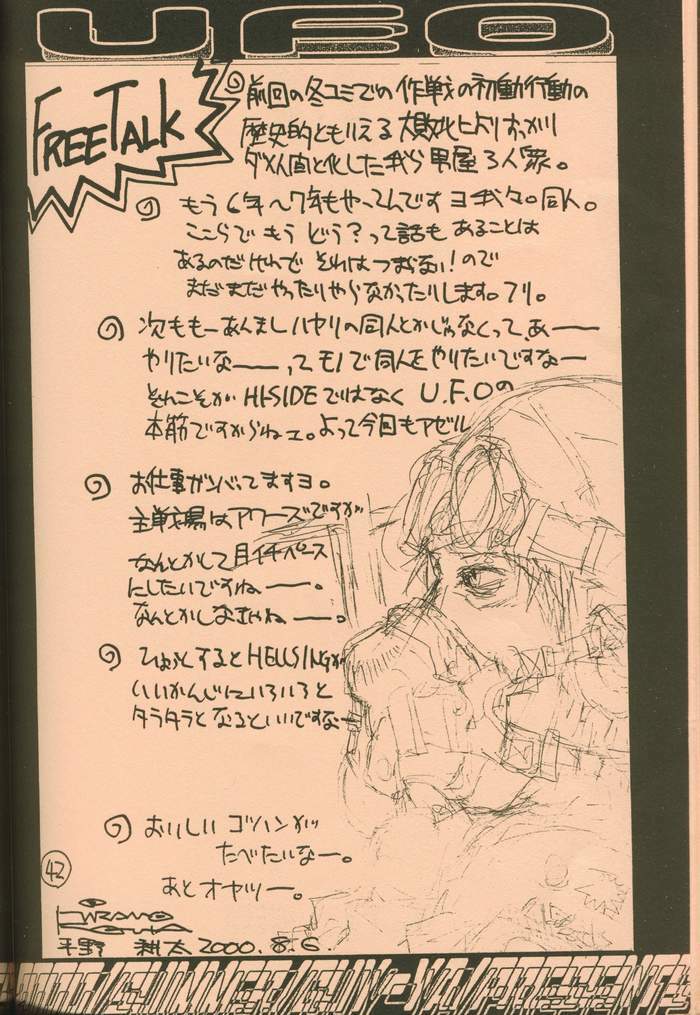 UFO
FREE TALK
前回の冬コミでの作戦の初動行動の
歴史的ともいえる大敗北によりすっかり
ダメ人間と化した我ら甲屋3人衆。
もう6年〜7年もやってんですヨ我々。同人。
ここらでもうどう?って話もあることは
あるのだけれどそれはつまらない!ので
まだまだやったりやらなかったりします。フリ。
次ももーあんましハヤリの同人とかじゃなくって、あーー
やりたいなーーってモノで同人をやりたいですなー
それこそがHI-SIDEではなくU.F.Oの
本筋ですからねェ。よって今回もアゼル
お仕事ガンバってますヨ。
主戦場はアワーズですが
なんとかして月イチペース
にしたいですねーー。
なんとかしなきゃねーー。
ひょっとするとHELLSINGが
いいかんじにいろいろと
タラタラとなるといいですなー
おいしいゴハンが
たべたいなー。
あとオヤツー。
42
HIRANO
KOHTA
平野 耕太 2000.8.6.
SUMMER GUY-YA PRESENTS